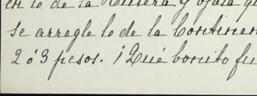 en lo de la Riviera y ojalá qu
se arregle lo de la Continen
2 ó 3 pesos. ¡Qué bonito fu